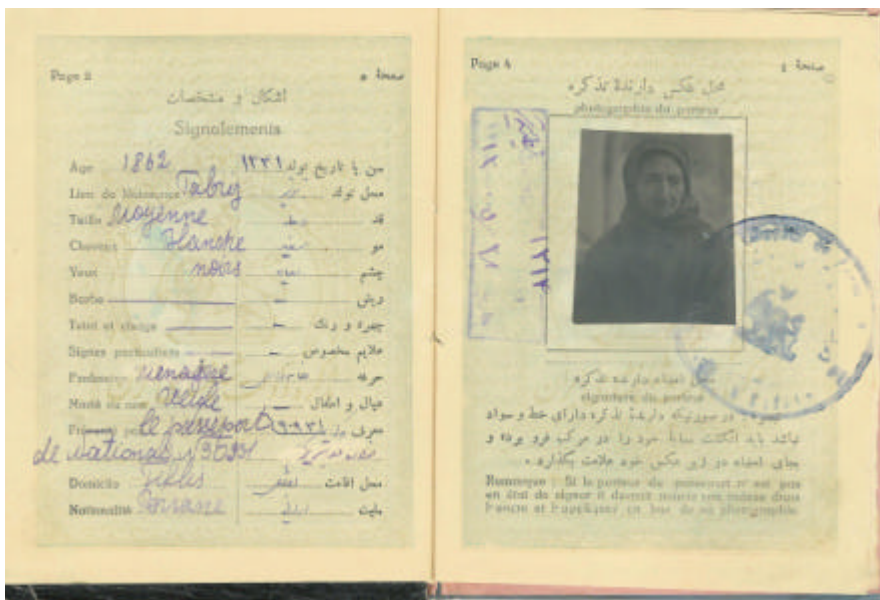 Page 5
صفحهٔ ٥
اشکال و مشخصات
Signalements
Age 1862 سن یا تاریخ تولد ١٢٣١
Lieu de Naissance Tabriz محل تولد
Taille Moyenne قد
Cheveux Blanche مو
Yeux noirs چشم
Barbe ریش
Teint et visage چهره و رنگ
Signes particuliers علایم مخصوص
Profession Menagère حرفه
Marié ou non عیال و اطفال
le passeport معرف
de national
Domicile Tiflis محل اقامت
Nationalité Persane ملیت
Page 4
صفحهٔ ٤
محل عکس دارندهٔ تذکره
photographie du porteur
١٢١٢
محل امضاء دارندهٔ تذکره
signature du porteur
در صورتیکه دارندهٔ تذکره دارای خط و سواد
نباشد باید انگشت خود را در مرکب فرو برده و
بجای امضاء در زیر عکس خود علامت بگذارد
Remarque : Si le porteur du passeport n'est pas
en état de signer il devrait mettre son index dans
l'encre et l'appliquer en bas de sa photographie.